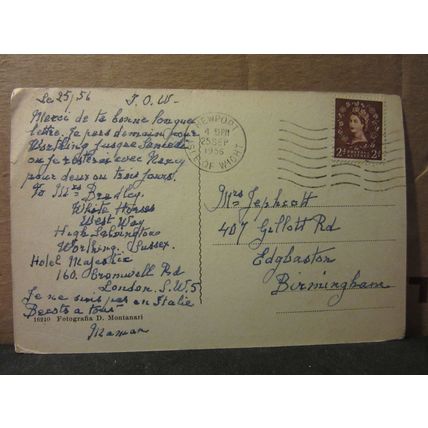 Le 25/56 I.O.W-
Merci de ta bonne longue
lettre. Je pars demain pour
Worthing jusque Samedi
ou je resterai avec Nancy
pour deux ou trois jours.
To Mrs Bradley
White Horses
West Way
High Salvington
Worthing. Sussex.
Hotel Majestic
160. Cromwell Rd
London. S.W.5
Je ne suis pas en Italie
à tous
Maman
16210 Fotografia D. Montanari
NEWPORT
4-PM
25 SEP
1956
ISLE OF WIGHT
2D POSTAGE REVENUE 2D
Mrs Jephcott
407 Gillott Rd
Edgbaston
Birmingham